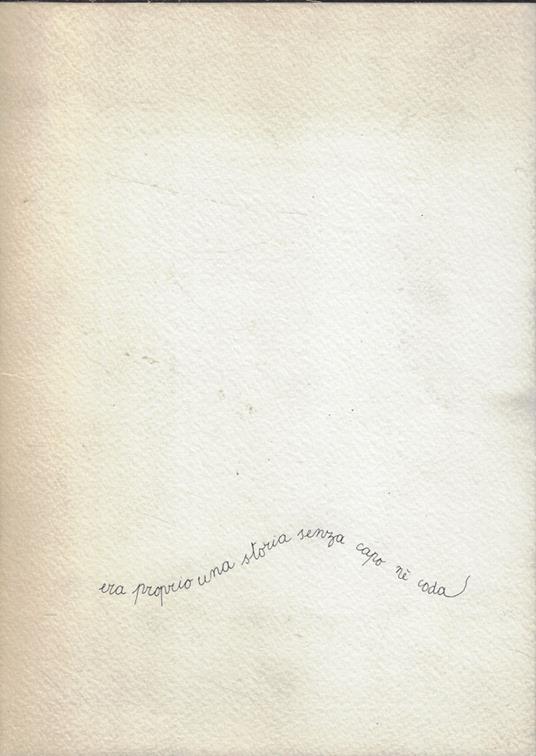 era proprio una storia senza capo nè coda